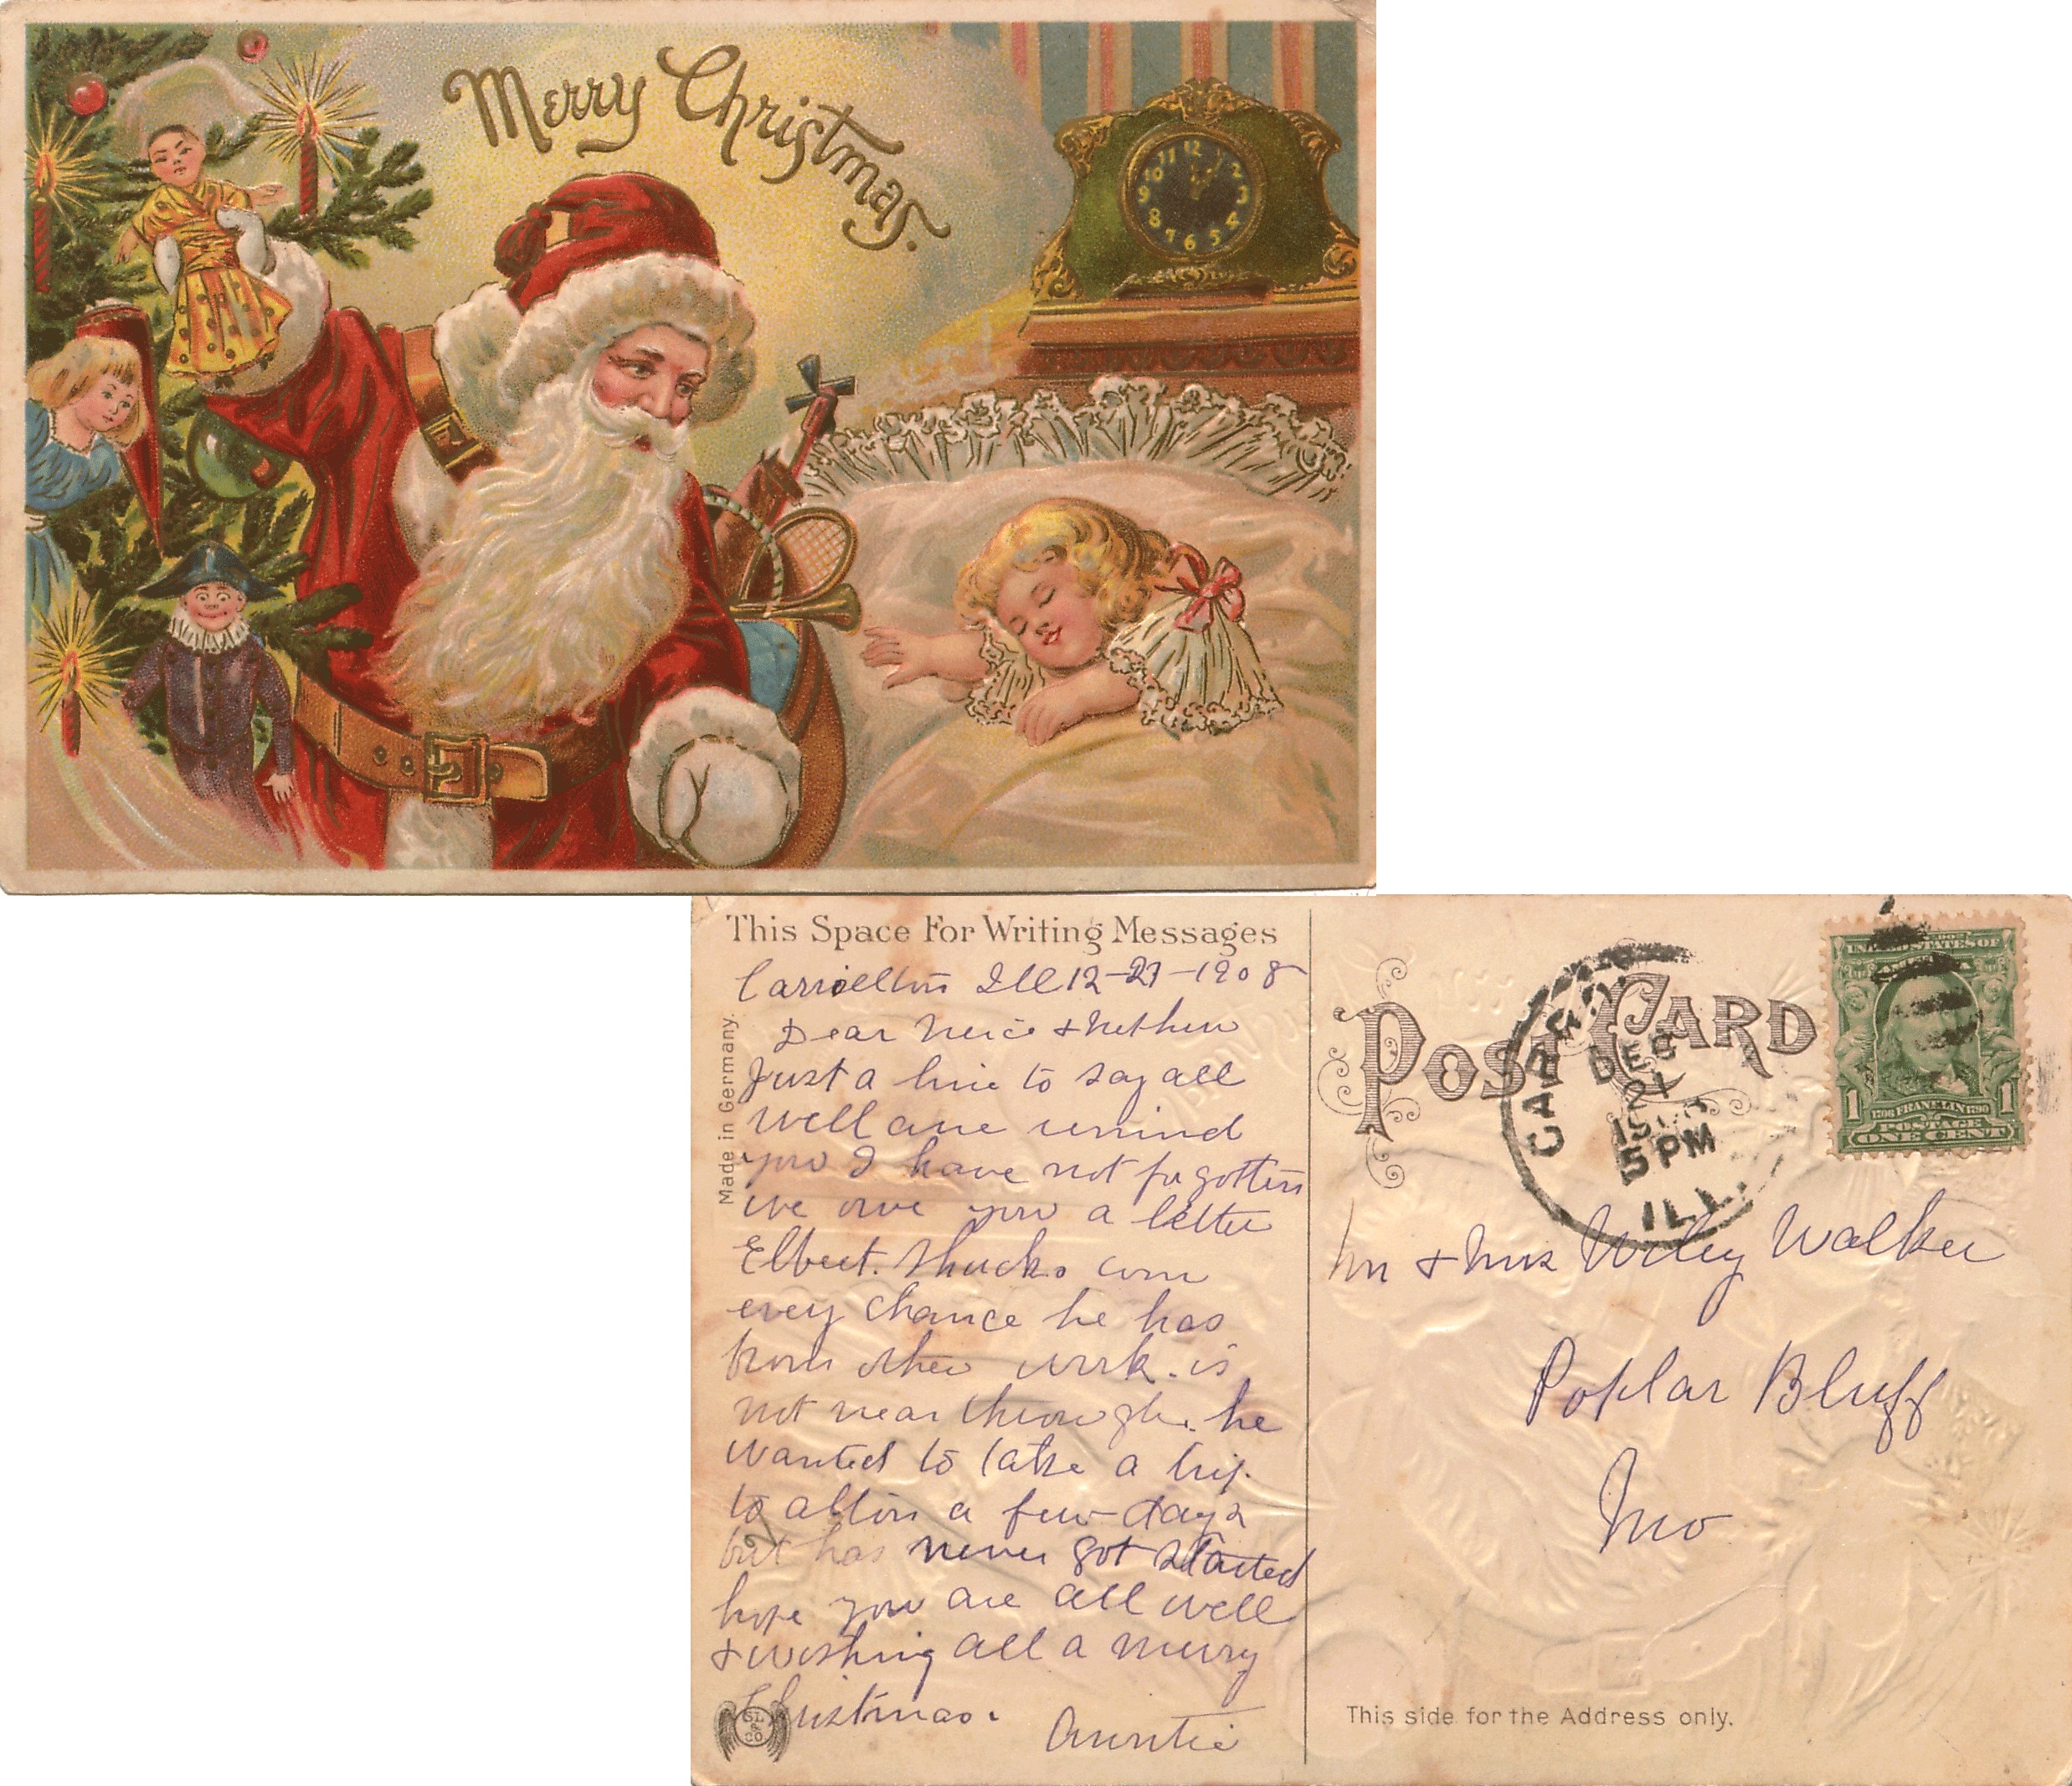 Merry Christmas.
11 12 1
10 2
9 3
8 4
7 6 5
This Space For Writing Messages
Made in Germany.
Carrollton Ill 12-21-1908
Dear Neice & Nethew
Just a line to say all
well and remind
you I have not forgotten
we owe you a letter
Elbert. Shucks corn
every chance he has
from other work. is
not near through. he
wanted to take a trip
to Alton a few days
but has never got started
hope you are all well
& wishing all a merry
Christmas.
Auntie
SL
& CO
POST CARD
DEC
21
5 PM
ILL.
UNITED STATES OF
1706 FRANKLIN 1790
1 1
POSTAGE
ONE CENT
Mr & Mrs Wiley Walker
Poplar Bluff
Mo
This side for the Address only.